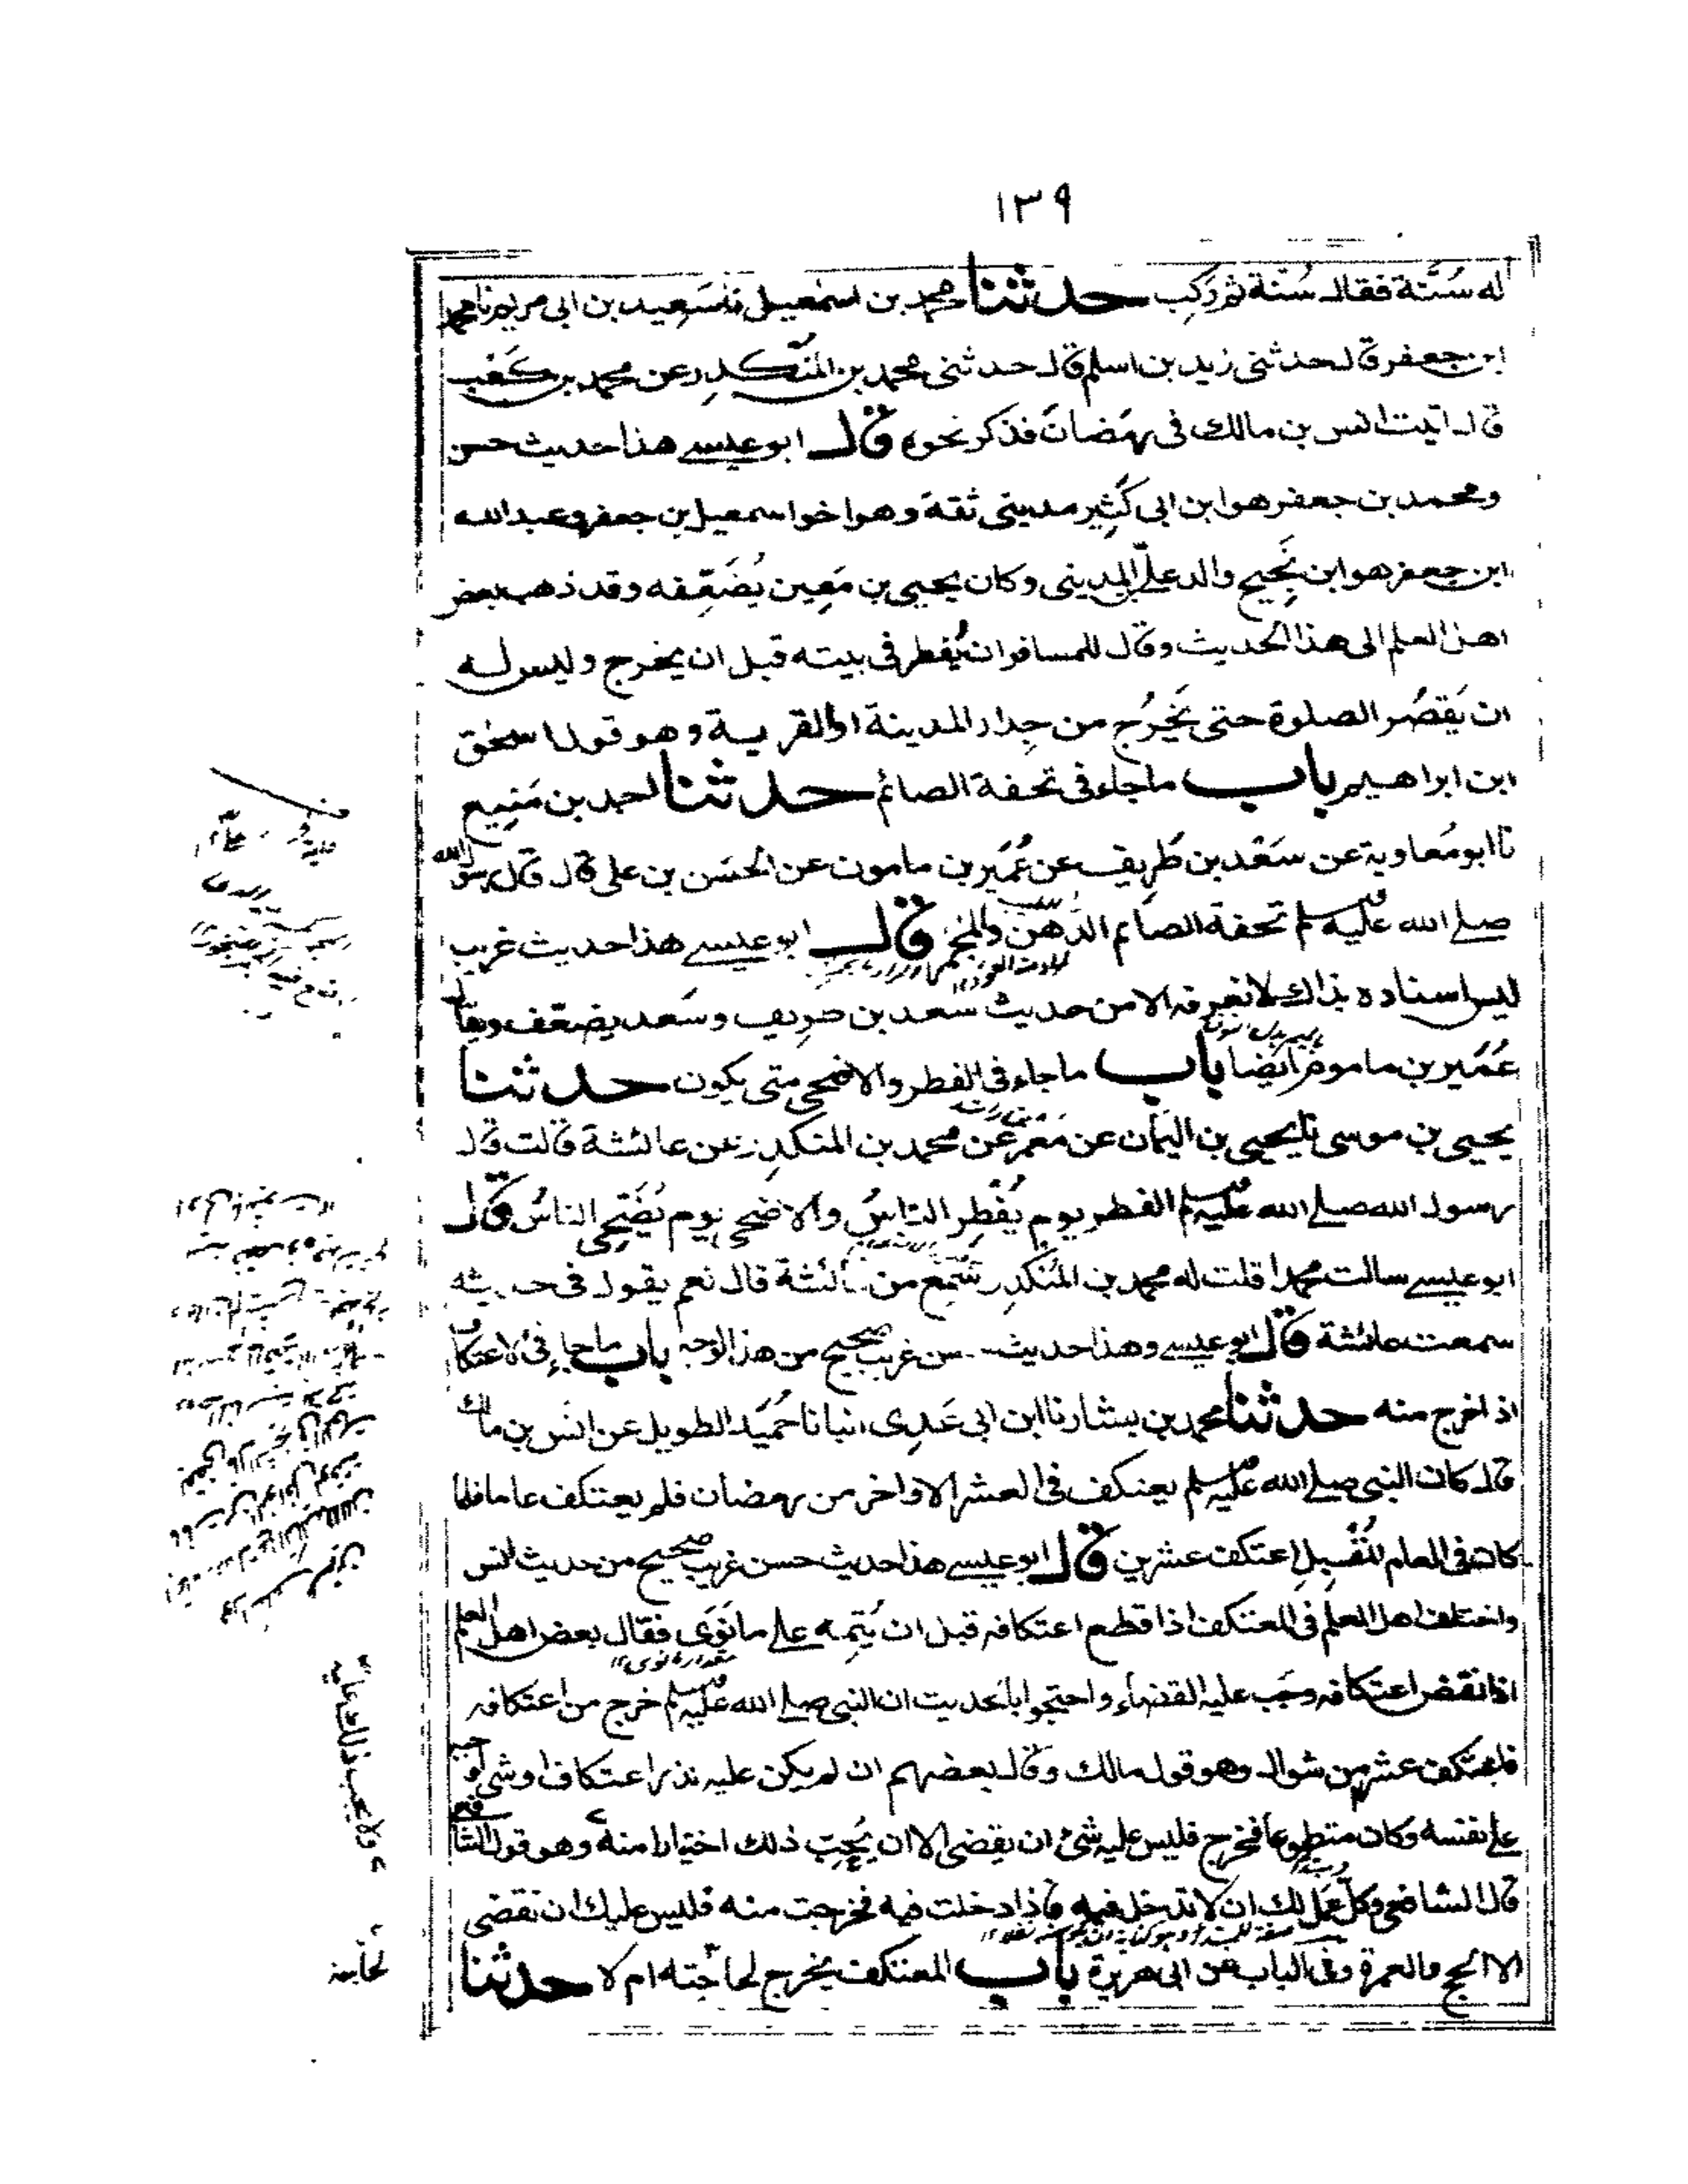 ١٣٩
له سُنَّة فقال سُنَّة ثم رَكِب حدثنا محمد بن اسمعيل نا سَعِيد بن ابى مريم نا محمد
ابن جعفر قال حدثنى زيد بن اسلم قال حدثنى محمد بن المُنكَدِر عن محمد بن كَعْب
قال اتيت انس بن مالك فى رمَضان فذكر نحوه قال ابو عيسے هذا حديث حسن
ومحمد بن جعفر هو ابن ابى كَثِير مدينى ثقة وهو اخو اسمعيل بن جعفر وعبد الله
ابن جعفر هو ابن نَجِيح والد علىّ المدينى وكان يحيى بن مَعِين يُضَعِّفه وقد ذهب بعض
اهل العلم الى هذا الحديث وقال للمسافر ان يُفطر فى بيته قبل ان يخرج وليس له
ان يَقصُر الصلوة حتى يَخرُج من جِدار المدينة او القرية وهو قول اسحٰق
ابن ابراهيم باب ماجاء فى تحفة الصائم حدثنا احمد بن مَنِيع
نا ابو مُعاوية عن سَعْد بن طَرِيف عن عُمَير بن مامون عن الحسَن بن على قال قال رسول الله
صلے الله عليه وسلم تحفة الصائم الدُّهنُ والمِجمَرُ قال ابو عيسے هذا حديث غريب
ليس اسناده بذاك لا نعرفه الا من حديث سعد بن طريف وسَعد يضعّف ويقال
عُمَير بن ماموم ايضا باب ماجاء فى الفطر والاضحى متى يكون حدثنا
يحيى بن موسى نا يحيى بن اليمَان عن مَعْمَر عن محمد بن المنكدِر عن عائشة قالت قال
رسول الله صلے الله عليه وسلم الفطر يوم يُفْطِر الناسُ والاضحى يوم يُضَحِّى الناسُ قال
ابو عيسے سالت محمدا قلت له محمد بن المُنكَدِر سَمِع من عائشة قال نعم يقول فى حديثه
سمعت عائشة قال ابو عيسے وهذا حديث حسن غريب صحيح من هذا الوجه باب ماجاء فى الاعتكاف
اذا خرج منه حدثنا محمد بن بشار نا ابن ابى عَدِى انبانا حُمَيد الطويل عن انَس بن مالك
قال كان النبى صلے الله عليه وسلم يعتكف فى العشر الاواخر من رمضان فلم يعتكف عاما فلما
كان فى العام المُقْبِل اعتكف عشرين قال ابو عيسے هذا حديث حسن غريب صحيح من حديث انس
واختلف اهل العلم فى المعتكف اذا قطع اعتكافه قبل ان يُتِمه علے ما نَوَى فقال بعض اهل العلم
اذا نقض اعتكافه وجَب عليه القضاء واحتجوا بالحديث ان النبى صلے الله عليه وسلم خرج من اعتكافه
فاعتكف عشرا من شوال وهو قول مالك وقال بعضهم ان لم يكن عليه نذر اعتكاف او شئ اوجبه
علے نفسه وكان متطوعا فخرج فليس عليه شئ ان يقضى الا ان يُحِبّ ذلك اختيارا منه وهو قول الشافعى
قال الشافعى وكل عمل لك ان لا تدخل فيه فاذا دخلت فيه فخرجت منه فليس عليك ان تقضى
الا الحج والعمرة وفى الباب عن ابى هريرة باب المعتكف يخرج لحاجته ام لا حدثنا
ولا يجب ذلك عليه